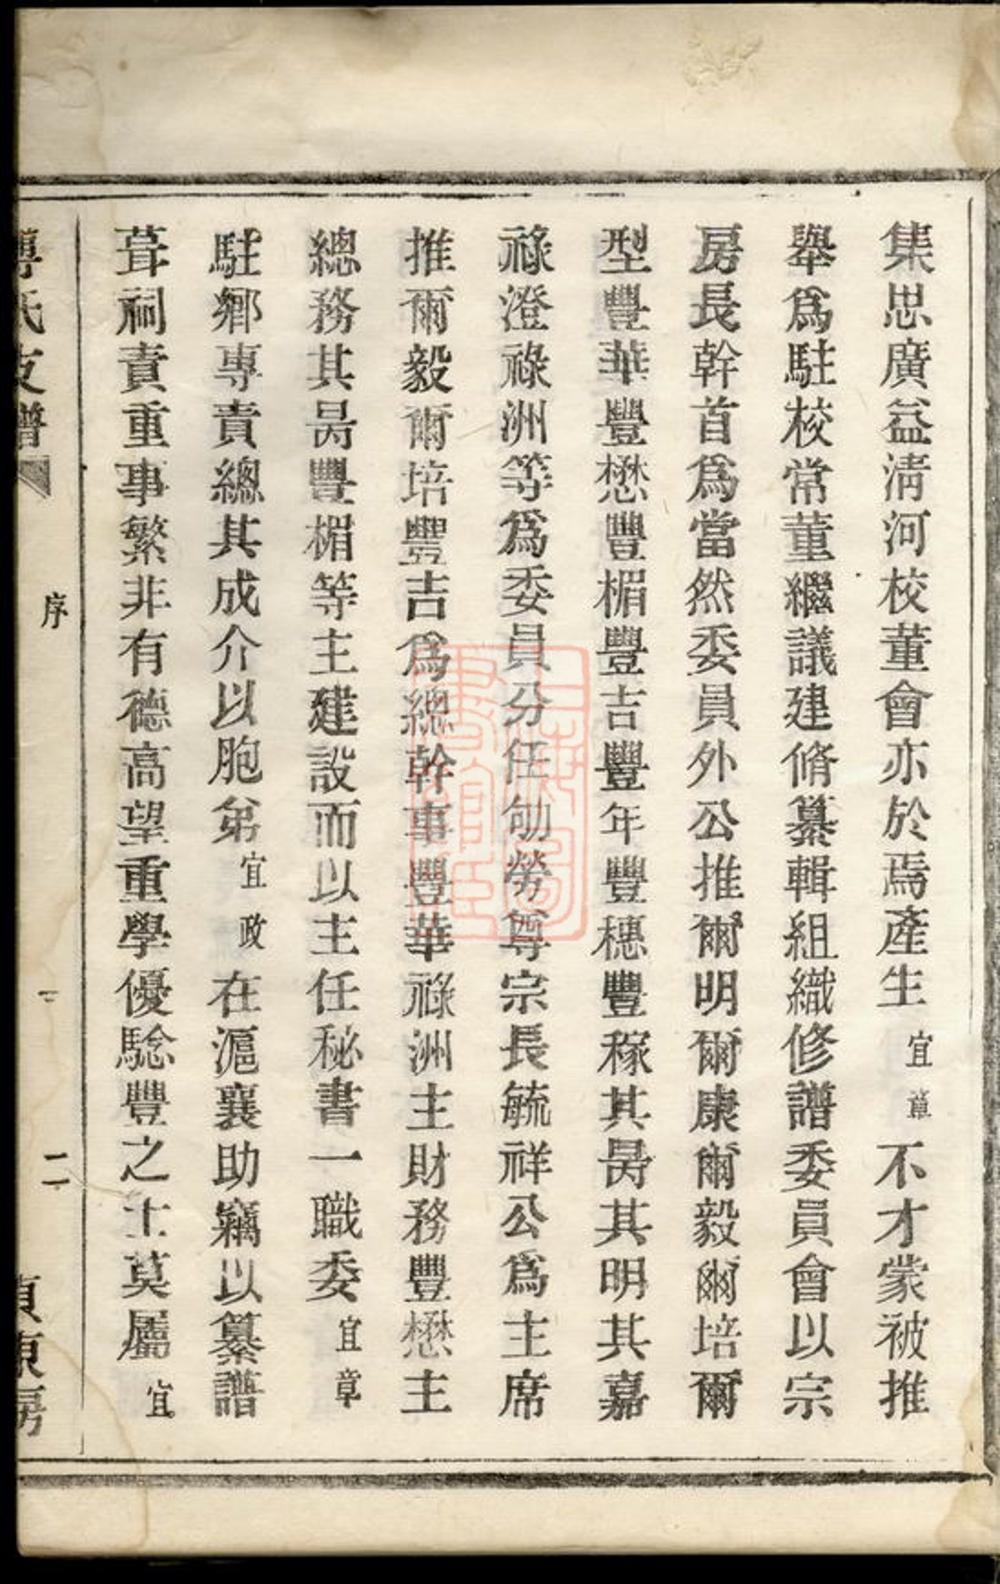 集思廣益淸河校董會亦於焉產生宜章不才蒙被推
舉爲駐校常董繼議建脩纂輯組織修譜委員會以宗
房長幹首爲當然委員外公推爾明爾康爾毅爾培爾
型豐華豐懋豐楣豐吉豐年豐穗豐稼其昺其明其嘉
祿澄祿洲等爲委員分任劬勞尊宗長毓祥公爲主席
推爾毅爾培豐吉爲總幹事豐華祿洲主財務豐懋主
總務其昺豐楣等主建設而以主任秘書一職委宜章
駐鄉專責總其成介以胞弟宜政在滬襄助竊以纂譜
葺祠責重事繁非有德高望重學優騐豐之士莫屬宜
氏支譜
序
二
東房
上海圖書館藏